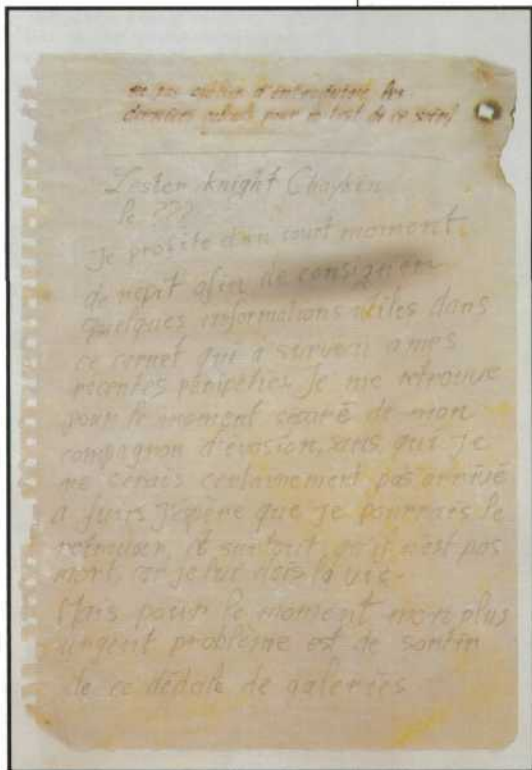 ne pas oublier d'entreprendre les
derniers pour le test de ce soir!
Lester Knight Chaykin
le ???
Je profite d'un court moment
de répit afin de consigner
quelques informations utiles dans
ce carnet qui a survécu a mes
récentes péripéties. Je me retrouve
pour le moment séparé de mon
compagnon d'évasion, sans qui je
me serais certainement pas arrivé
a fuir. J'espère que je pourrais le
retrouver, et surtout, qu'il n'est pas
mort, car je lui dois la vie.
Mais pour le moment mon plus
urgent problème est de sortir
de ce dédale de galeries